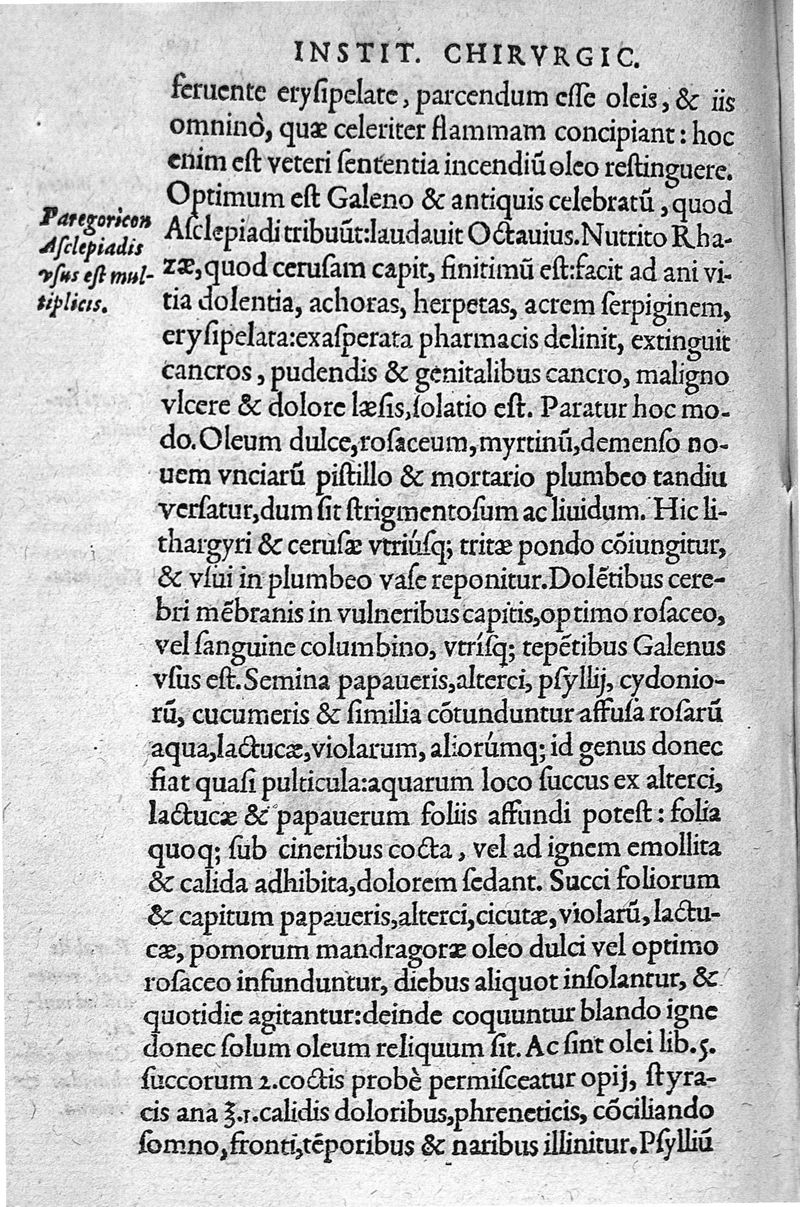 INSTIT. CHIRVRGIC.
feruente eryſipelate, parcendum eſſe oleis, & iis
omninò, quæ celeriter flammam concipiant: hoc
enim eſt veteri ſententia incendiū oleo reſtinguere.
Optimum eſt Galeno & antiquis celebratū, quod
Aſclepiadi tribuūt: laudauit Octauius. Nutrito Rha-
zæ, quod ceruſam capit, finitimū eſt: facit ad ani vi-
tia dolentia, achoras, herpetas, acrem ſerpiginem,
eryſipelata: exaſperata pharmacis delinit, extinguit
cancros, pudendis & genitalibus cancro, maligno
vlcere & dolore læſis, ſolatio eſt. Paratur hoc mo-
do. Oleum dulce, roſaceum, myrtinū, demenſo no-
uem vnciarū piſtillo & mortario plumbeo tandiu
verſatur, dum ſit ſtrigmentoſum ac liuidum. Hic li-
thargyri & ceruſæ vtriúſq; tritæ pondo cōiungitur,
& vſui in plumbeo vaſe reponitur. Dolētibus cere-
bri mēbranis in vulneribus capitis, optimo roſaceo,
vel ſanguine columbino, vtríſq; tepētibus Galenus
vſus eſt. Semina papaueris, alterci, pſyllij, cydonio-
rū, cucumeris & ſimilia cōtunduntur affuſa roſarū
aqua, lactucæ, violarum, aliorúmq; id genus donec
fiat quaſi pulticula: aquarum loco ſuccus ex alterci,
lactucæ & papauerum foliis affundi poteſt: folia
quoq; ſub cineribus cocta, vel ad ignem emollita
& calida adhibita, dolorem ſedant. Succi foliorum
& capitum papaueris, alterci, cicutæ, violarū, lactu-
cæ, pomorum mandragoræ oleo dulci vel optimo
roſaceo infunduntur, diebus aliquot inſolantur, &
quotidie agitantur: deinde coquuntur blando igne
donec ſolum oleum reliquum ſit. Ac ſint olei lib. 5.
ſuccorum 2. coctis probè permiſceatur opij, ſtyra-
cis ana ℥. 1. calidis doloribus, phreneticis, cōciliando
ſomno, fronti, tēporibus & naribus illinitur. Pſylliū
Paregoricon
Aſclepiadis
vſus eſt mul-
tiplicis.